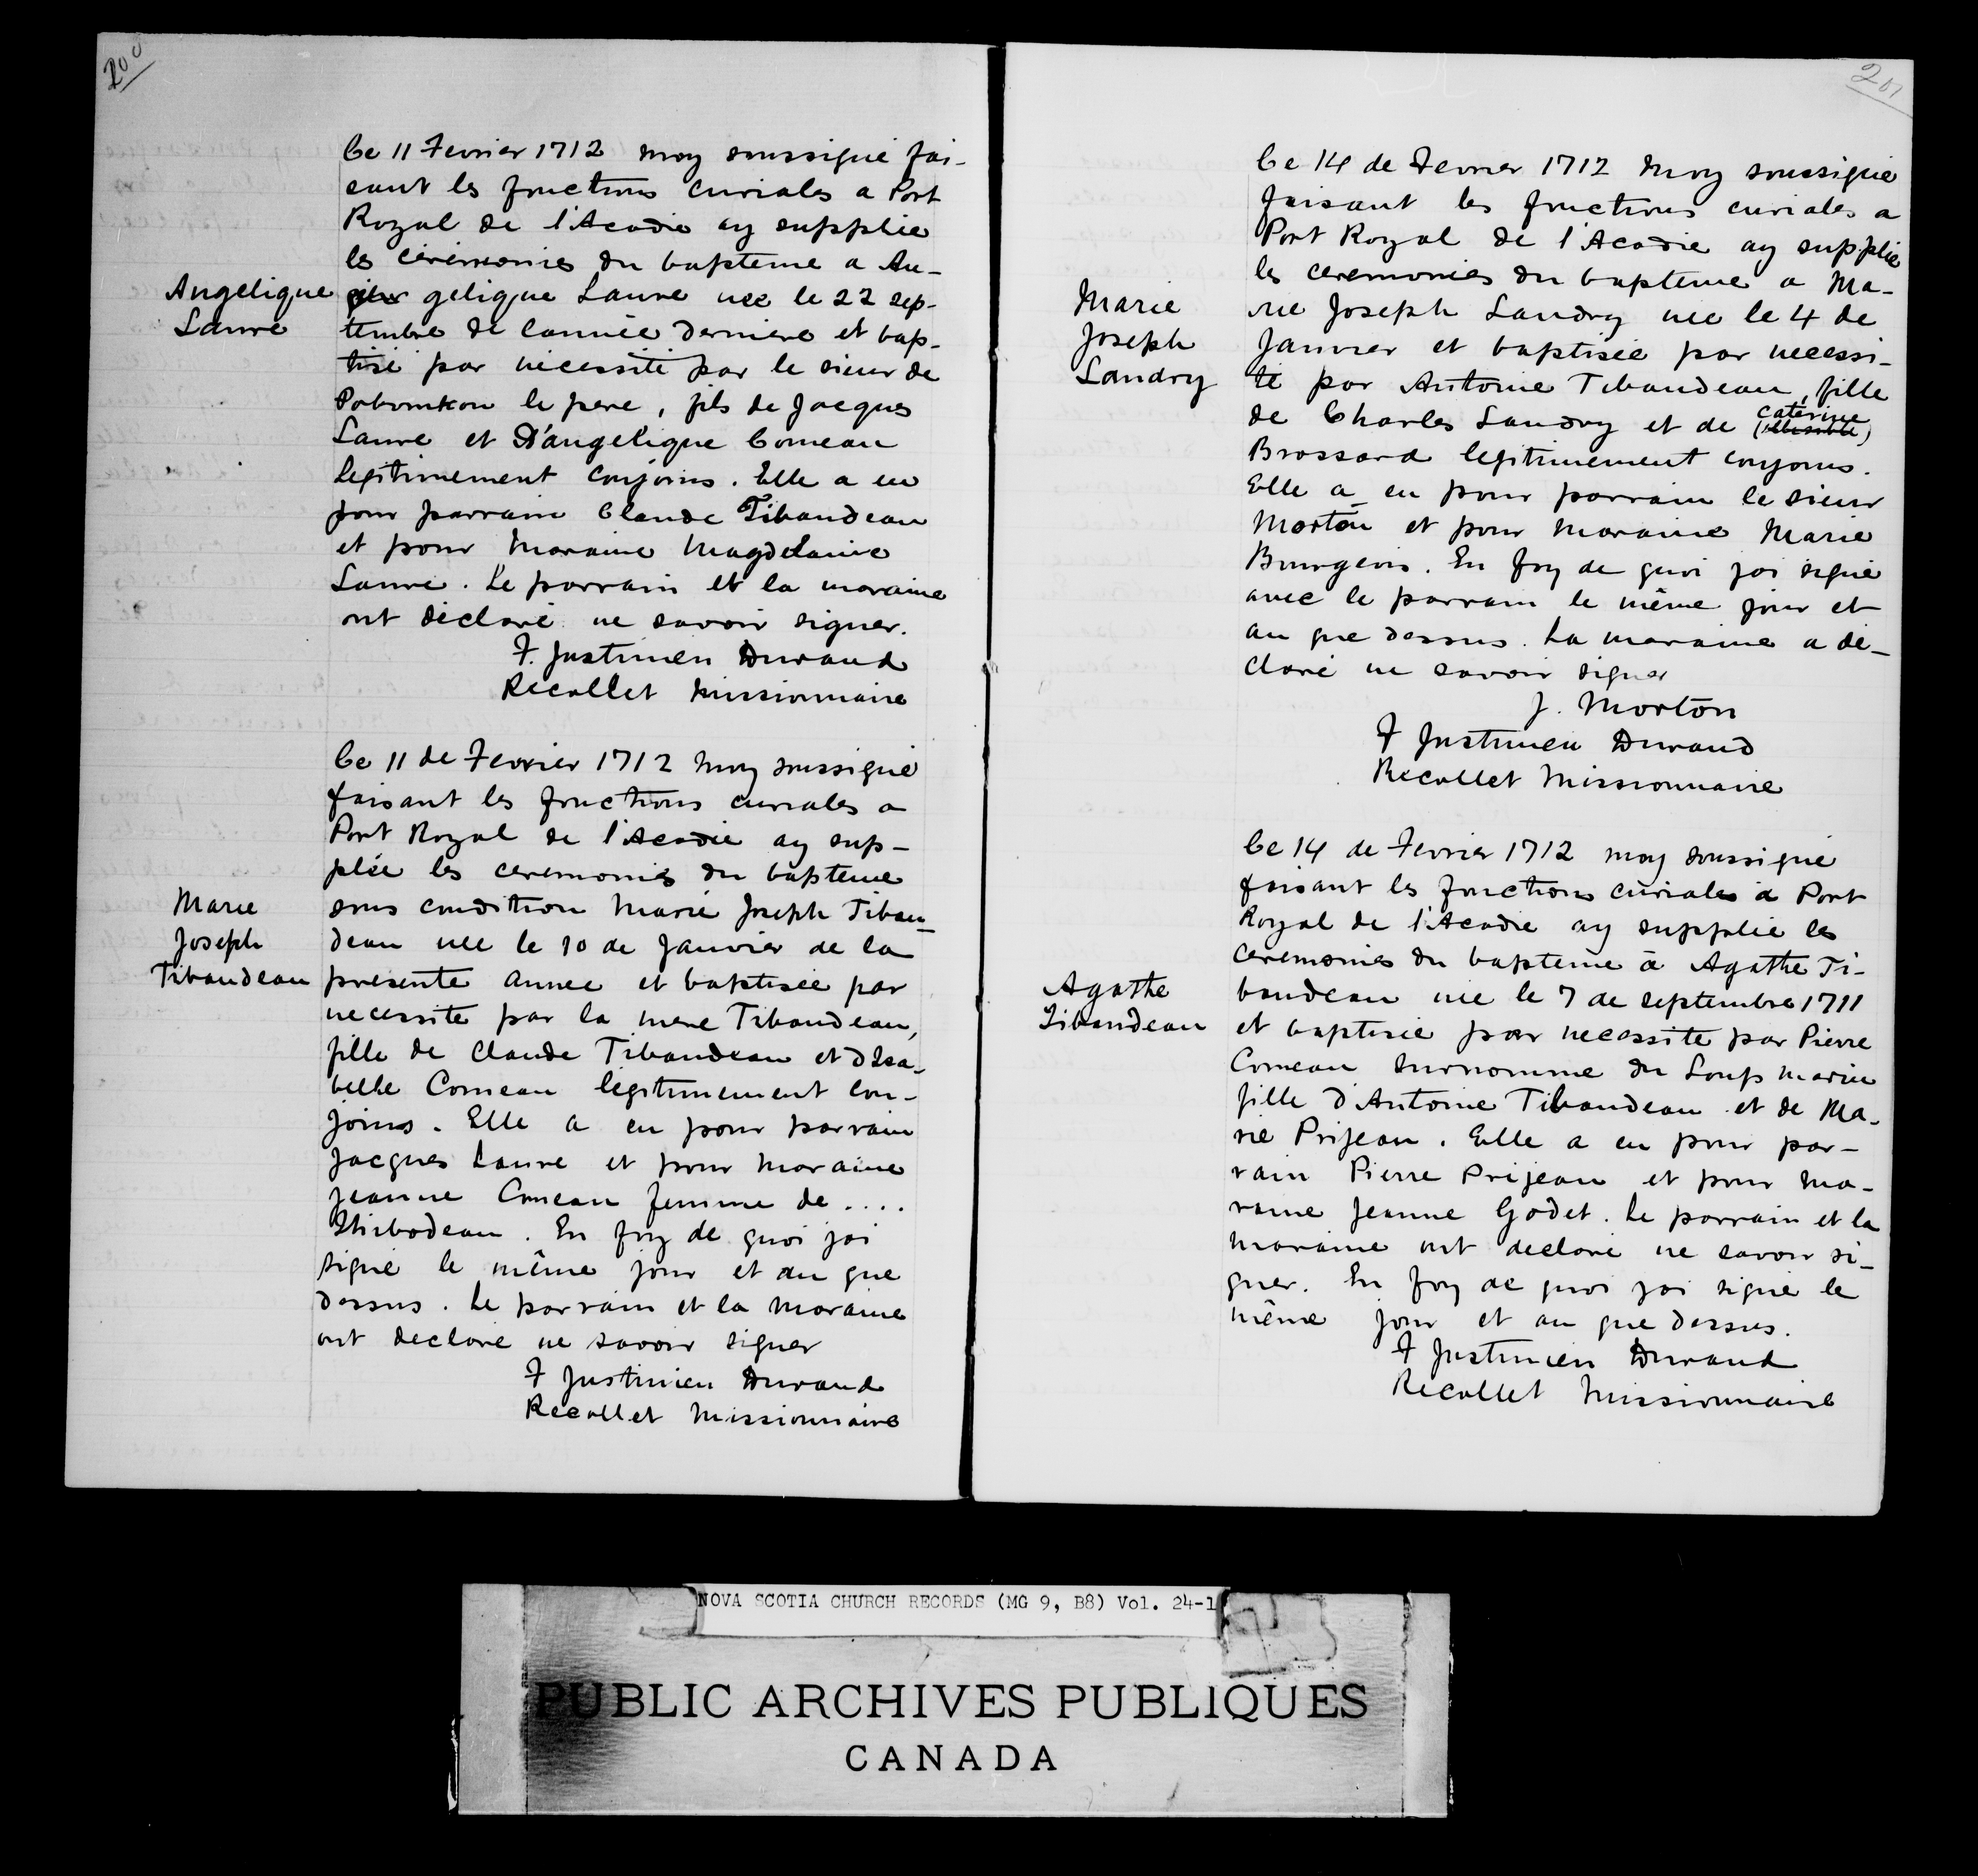 200
Ce 11 Fevrier 1712 moy soussigné fai-
sant les fonctions curiales a Port
Royal de l'Acadie ay supplié
les cérémonies du bapteme a An-
Angelique
gelique Laure née le 22 sep-
Laure
tembre de l'année derniere et bap-
tisé par nécessité par le sieur de
Pobomkou le pere, fils de Jacques
Laure et D'angelique Comeau
legitimement conjoins. Elle a eu
pour parrain Claude Tibaudeau
et pour maraine Magdelaine
Laure. Le parrain et la maraine
ont déclaré ne savoir signer.
F. Justinien Durand
Recollet Missionnaire
Ce 11 de Fevrier 1712 moy soussigné
faisant les fonctions curiales a
Port Royal de l'Acadie ay sup-
plée les ceremonies du bapteme
Marie
sous condition Marie Joseph Tibau-
Joseph
deau née le 10 de Janvier de la
Tibaudeau
presente annee et baptisée par
necessité par la mere Tibaudeau,
fille de Claude Tibaudeau et d'Isa-
belle Comeau légitimement con-
joins. Elle a eu pour parrain
Jacques Laure et pour maraine
Jeanne Comeau femme de ....
Thibodeau. En foy de quoi jai
signé le même jour et an que
dessus. Le parrain et la maraine
ont declaré ne savoir signer
F Justinien Durand
Recollet Missionnaire
201
Ce 14 de Fevrier 1712 moy soussigné
faisant les fonctions curiales a
Port Royal de l'Acadie ay supplié
les ceremonies du bapteme a Ma-
Marie
rie Joseph Landry née le 4 de
Joseph
Janvier et baptisée par necessi-
Landry
té par Antoine Tibaudeau, fille
de Charles Landry et de (illisible) Caterine
Brossard legitimement conjoins.
Elle a eu pour parrain le sieur
Morton et pour maraine Marie
Bourgeois. En foy de quoi jai signé
avec le parrain le même jour et
an que dessus. La maraine a dé-
claré ne savoir signer
J. Morton
F Justinien Durand
Recollet Missionnaire
Ce 14 de Fevrier 1712 moy soussigné
faisant les fonctions curiales a Port
Royal de l'Acadie ay supplié les
ceremonies du bapteme à Agathe Ti-
Agathe
baudeau née le 7 de septembre 1711
Tibaudeau
et baptisée par necessité par Pierre
Comeau surnomme du Loup marin
fille d'Antoine Tibaudeau et de Ma-
rie Prijean. Elle a eu pour par-
rain Pierre Prijean et pour ma-
raine Jeanne Godet. Le parrain et la
maraine ont declaré ne savoir si-
gner. En foy de quoi jai signé le
même jour et an que dessus.
F Justinien Durand
Recollet Missionnaire
NOVA SCOTIA CHURCH RECORDS (MG 9, B8) Vol. 24-1
PUBLIC ARCHIVES PUBLIQUES
CANADA